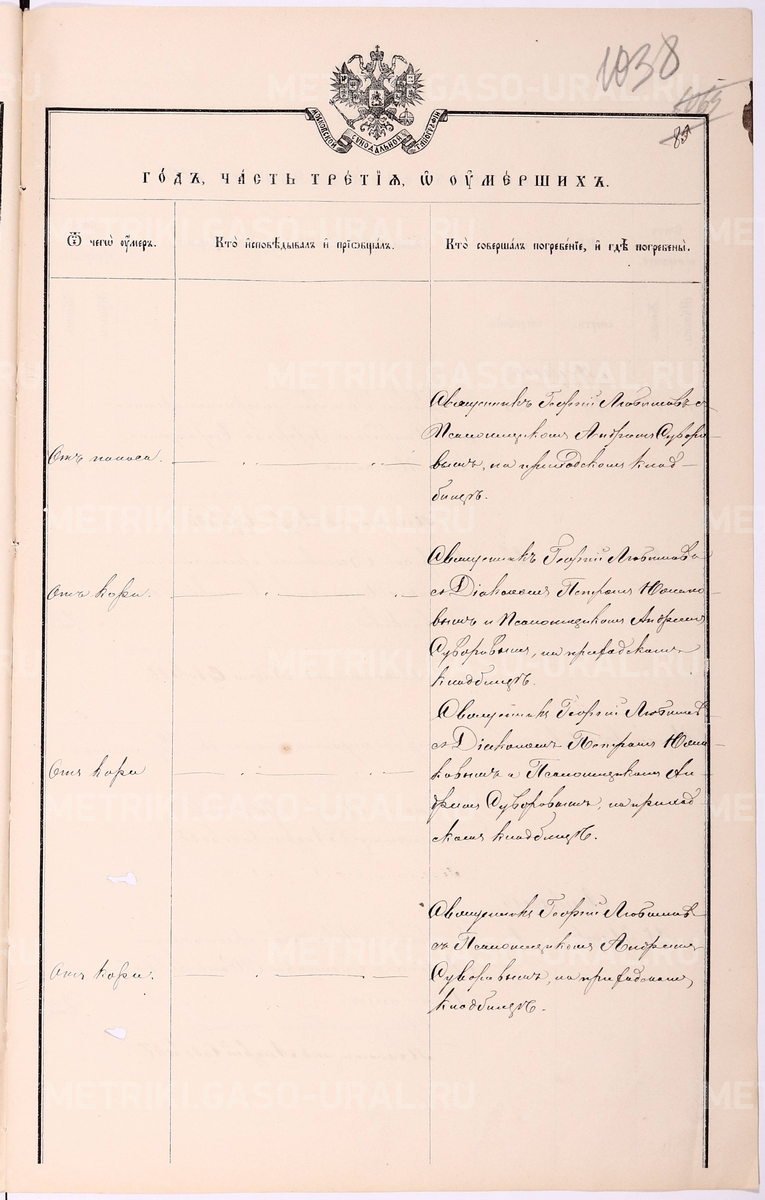 1038
1065
85
МОСКОВСКОЙ СѴНОДАЛЬНОЙ ТИПОГРАФІИ
ГО́ДЪ, ЧА́СТЬ ТРЕ́ТІѦ, Ѡ ОУ҆МЕ́РШИХЪ.
Ѿ чегѡ̀ ᲂу҆́меръ.
Кто̀ и҆сповѣ́дывалъ и҆ прїѡбща́лъ.
Кто̀ соверша́лъ погребе́нїе, и҆ гдѣ̀ погребены̀.
Отъ поноса.
Священникъ Георгій Любимовъ с
Псаломщикомъ Андреемъ Суворо-
вымъ, на приходскомъ клад-
бищѣ.
Отъ кори.
Священникъ Георгій Любимовъ
съ Діакономъ Петромъ
вымъ и Псаломщикомъ Андреемъ
Суворовымъ, на приходскомъ
кладбищѣ.
Отъ кори
Священникъ Георгій Любимовъ
съ Діакономъ Петромъ
ковымъ и Псаломщикомъ Ан-
дреемъ Суворовымъ, на приход-
скомъ кладбищѣ.
Отъ кори.
Священникъ Георгій Любимовъ
съ Псаломщикомъ Андреемъ
Суворовымъ, на приходскомъ
кладбищѣ.
METRIKI.GASO-URAL.RU